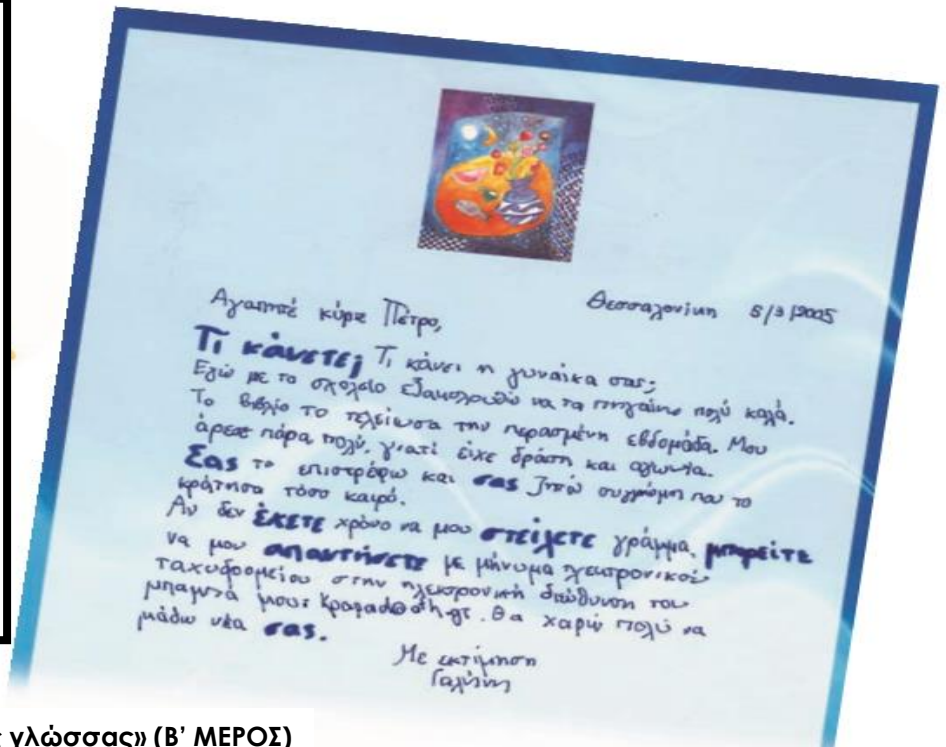 Θεσσαλονίκη 5/3/2005
Αγαπητέ κύριε Πέτρο,
Τι κάνετε; Τι κάνει η γυναίκα σας;
Εγώ με το σχολείο εξακολουθώ να τα πηγαίνω πολύ καλά.
Το βιβλίο το τελείωσα την περασμένη εβδομάδα. Μου
άρεσε πάρα πολύ, γιατί είχε δράση και αγωνία.
Σας το επιστρέφω και σας ζητώ συγγνώμη που το
κράτησα τόσο καιρό.
Αν δεν έχετε χρόνο να μου στείλετε γράμμα, μπορείτε
να μου απαντήσετε με μήνυμα ηλεκτρονικού
ταχυδρομείου στην ηλεκτρονική διεύθυνση του
μπαμπά μου: Θα χαρώ πολύ να
μάθω νέα σας.
Με εκτίμηση
γλώσσας» (Β’ ΜΕΡΟΣ)